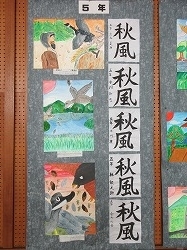 5年
秋風
秋風
秋風
秋風
秋風